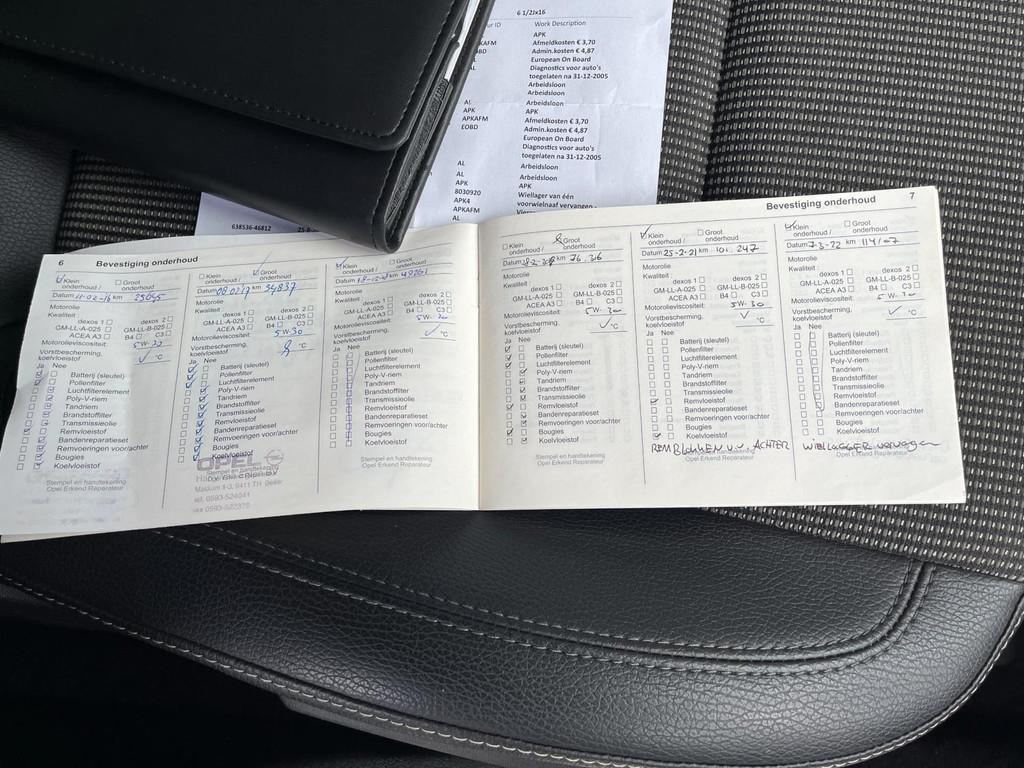 6 1/2Jx16
ur ID Work Description
APK
KAFM Afmeldkosten € 3,70
OBD Admin.kosten € 4,87
European On Board
AL Diagnostics voor auto's
toegelaten na 31-12-2005
Arbeidsloon
Arbeidsloon
AL Arbeidsloon
APK APK
APKAFM Afmeldkosten € 3,70
EOBD Admin.kosten € 4,87
European On Board
Diagnostics voor auto's
toegelaten na 31-12-2005
AL Arbeidsloon
AL Arbeidsloon
APK APK
8030920 Wiellager van één
APK4 voorwielnaaf vervangen -
APKAFM
AL
638536-46812 25-8-
6 Bevestiging onderhoud
Klein onderhoud / Groot onderhoud
Datum 11-02-16 km 25045
Motorolie
Kwaliteit:
dexos 1 dexos 2
GM-LL-A-025 GM-LL-B-025
ACEA A3 B4 C3
Motorolieviscositeit: 5W-30
Vorstbescherming,
koelvloeistof °C
Ja Nee
Batterij (sleutel)
Pollenfilter
Luchtfilterelement
Poly-V-riem
Tandriem
Brandstoffilter
Transmissieolie
Remvloeistof
Bandenreparatieset
Remvoeringen voor/achter
Bougies
Koelvloeistof
Stempel en handtekening
Opel Erkend Reparateur
Klein onderhoud / Groot onderhoud
Datum km 54837
Motorolie
Kwaliteit:
dexos 1 dexos 2
GM-LL-A-025 GM-LL-B-025
ACEA A3 B4 C3
Motorolieviscositeit: 5W-30
Vorstbescherming,
koelvloeistof °C
Ja Nee
Batterij (sleutel)
Pollenfilter
Luchtfilterelement
Poly-V-riem
Tandriem
Brandstoffilter
Transmissieolie
Remvloeistof
Bandenreparatieset
Remvoeringen voor/achter
Bougies
Koelvloeistof
OPEL
Stempel en handtekening
Opel Erkend Reparateur
tel. 0593-524041
Klein onderhoud / Groot onderhoud
Datum km
Motorolie
Kwaliteit:
dexos 1 dexos 2
GM-LL-A-025 GM-LL-B-025
ACEA A3 B4 C3
Motorolieviscositeit: 5W-30
Vorstbescherming,
koelvloeistof °C
Ja Nee
Batterij (sleutel)
Pollenfilter
Luchtfilterelement
Poly-V-riem
Tandriem
Brandstoffilter
Transmissieolie
Remvloeistof
Bandenreparatieset
Remvoeringen voor/achter
Bougies
Koelvloeistof
Stempel en handtekening
Opel Erkend Reparateur
Bevestiging onderhoud 7
Klein onderhoud / Groot onderhoud
Datum km 76.316
Motorolie
Kwaliteit:
dexos 1 dexos 2
GM-LL-A-025 GM-LL-B-025
ACEA A3 B4 C3
Motorolieviscositeit: 5W-30
Vorstbescherming,
koelvloeistof °C
Ja Nee
Batterij (sleutel)
Pollenfilter
Luchtfilterelement
Poly-V-riem
Tandriem
Brandstoffilter
Transmissieolie
Remvloeistof
Bandenreparatieset
Remvoeringen voor/achter
Bougies
Koelvloeistof
Stempel en handtekening
Opel Erkend Reparateur
Klein onderhoud / Groot onderhoud
Datum 25-2-21 km 101.247
Motorolie
Kwaliteit:
dexos 1 dexos 2
GM-LL-A-025 GM-LL-B-025
ACEA A3 B4 C3
Motorolieviscositeit: 5W-30
Vorstbescherming,
koelvloeistof °C
Ja Nee
Batterij (sleutel)
Pollenfilter
Luchtfilterelement
Poly-V-riem
Tandriem
Brandstoffilter
Transmissieolie
Remvloeistof
Bandenreparatieset
Remvoeringen voor/achter
Bougies
Koelvloeistof
REMBLOKKEN ACHTER
Stempel en handtekening
Opel Erkend Reparateur
Klein onderhoud / Groot onderhoud
Datum 7-3-22 km
Motorolie
Kwaliteit:
dexos 1 dexos 2
GM-LL-A-025 GM-LL-B-025
ACEA A3 B4 C3
Motorolieviscositeit: 5W-30
Vorstbescherming,
koelvloeistof °C
Ja Nee
Batterij (sleutel)
Pollenfilter
Luchtfilterelement
Poly-V-riem
Tandriem
Brandstoffilter
Transmissieolie
Remvloeistof
Bandenreparatieset
Remvoeringen voor/achter
Bougies
Koelvloeistof
WIELLAGGER
Stempel en handtekening
Opel Erkend Reparateur